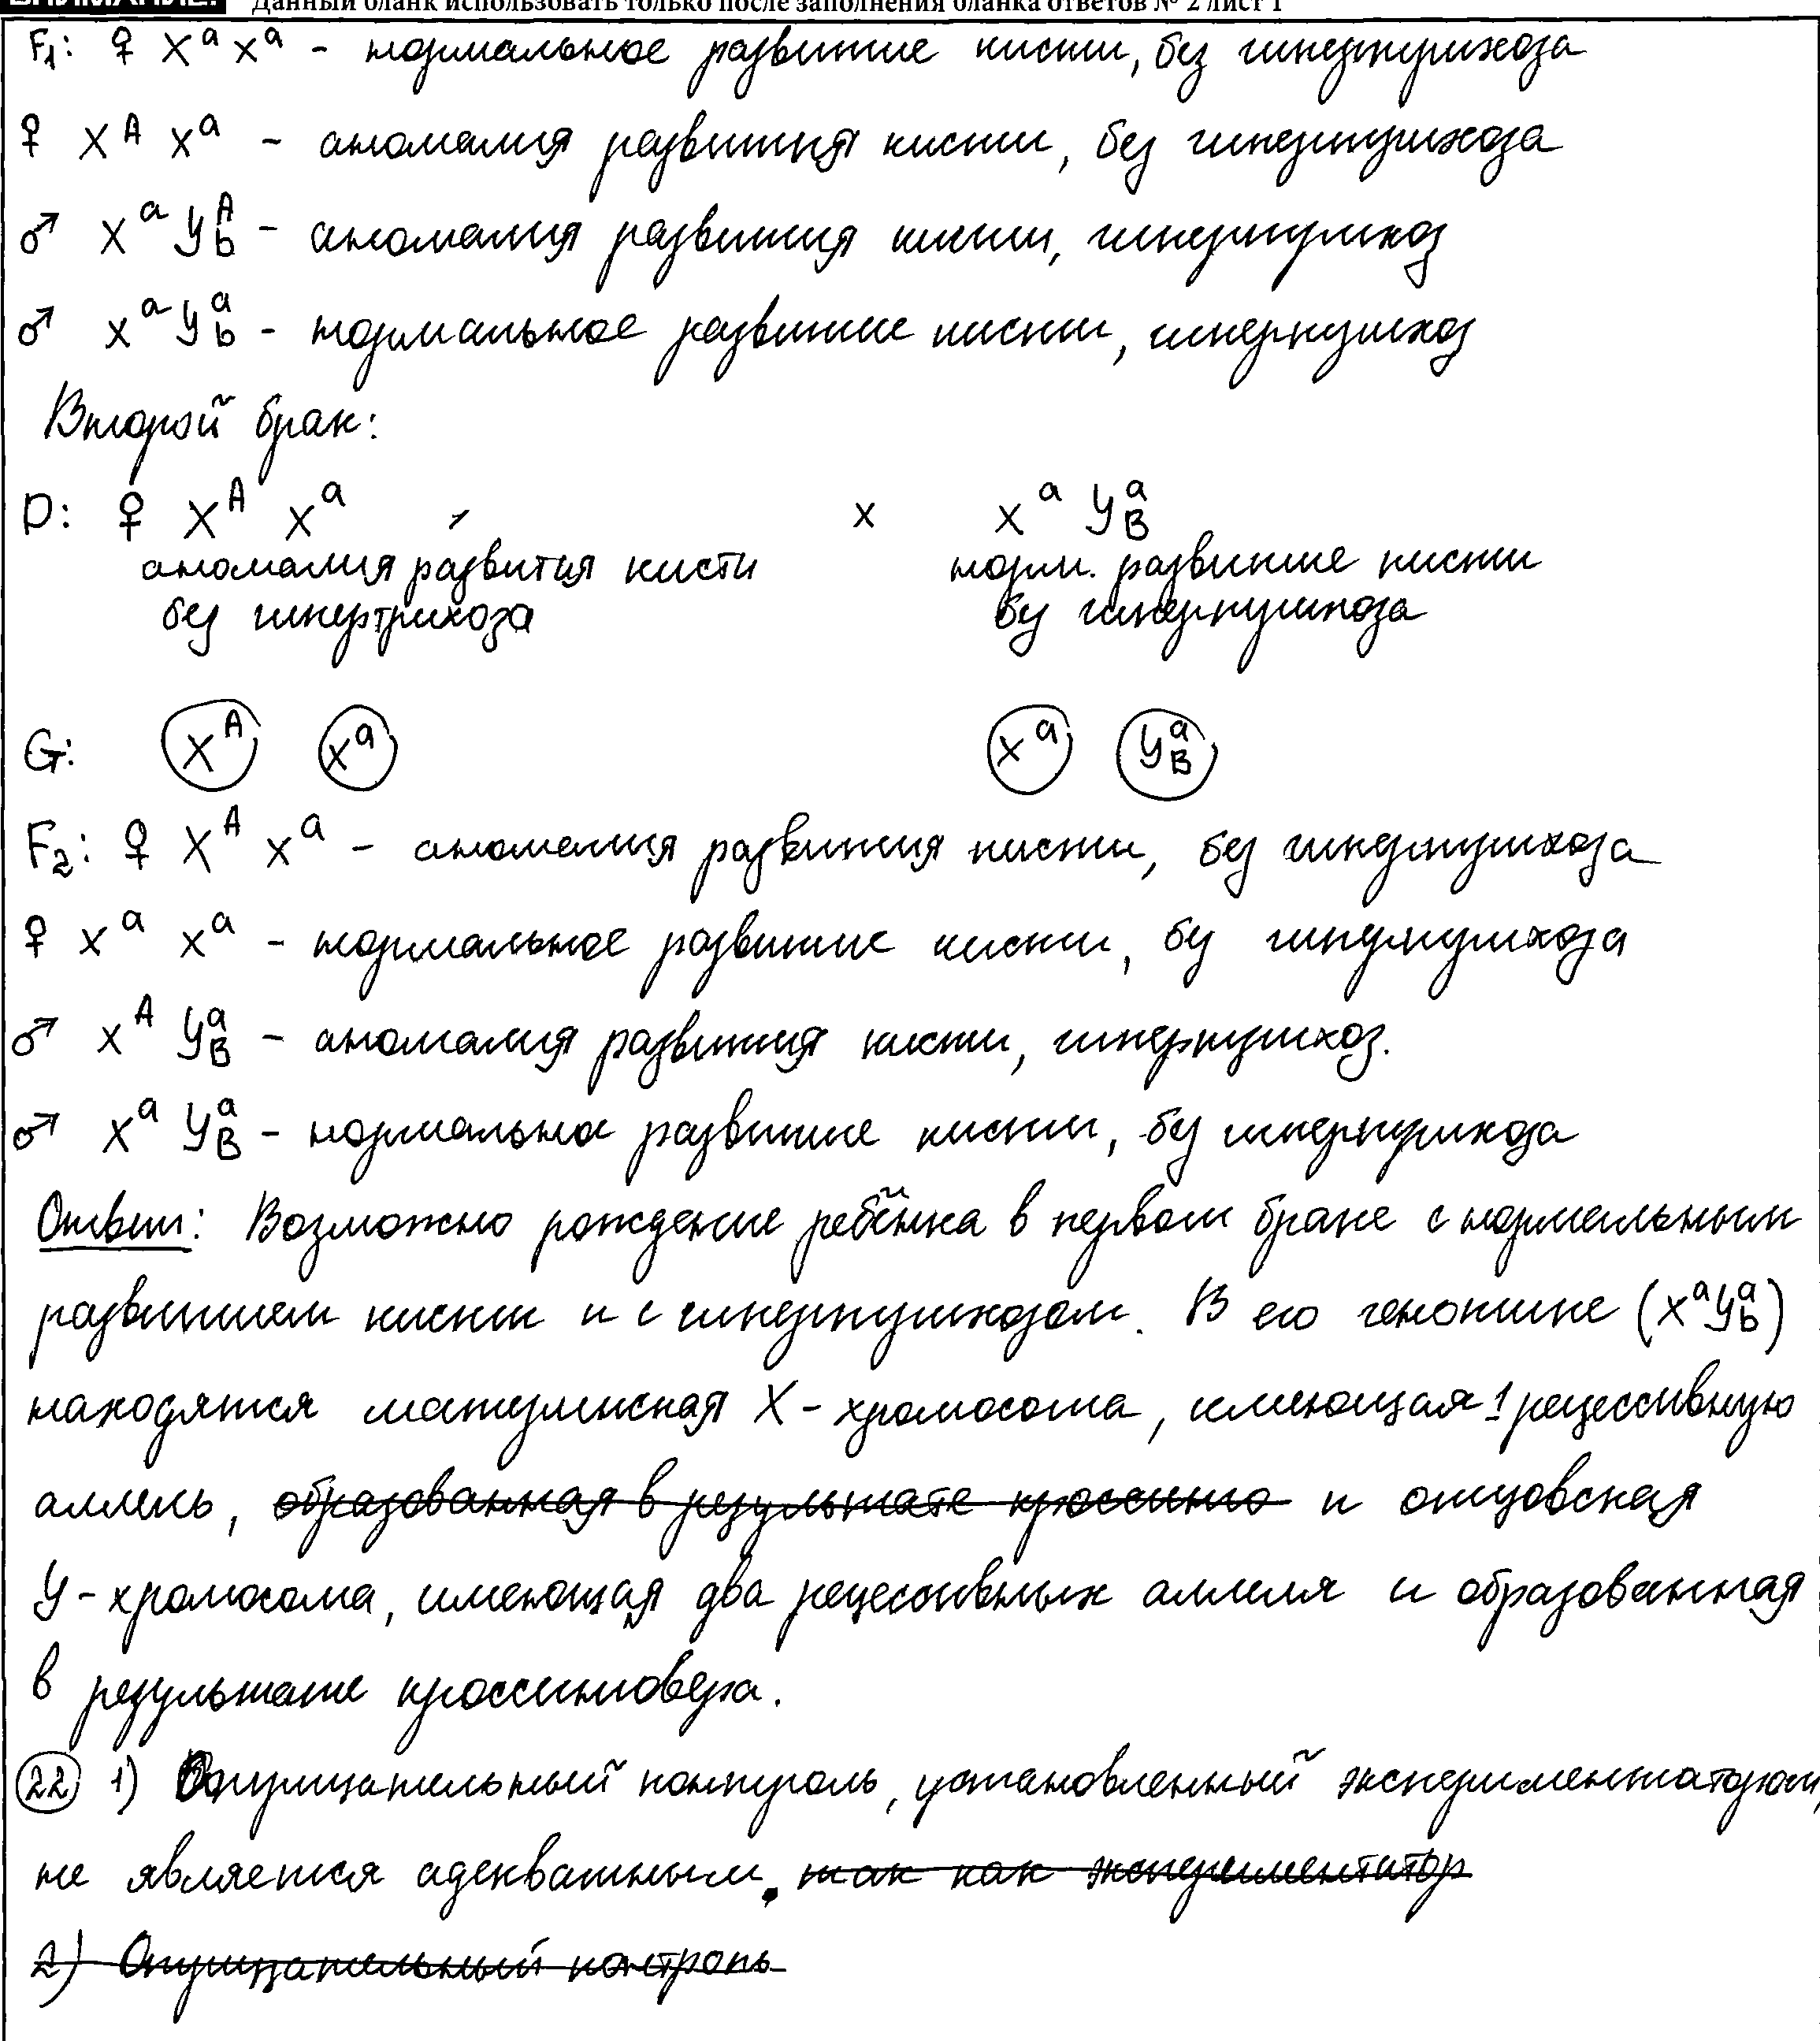 ВНИМАНИЕ! Данный бланк использовать только после заполнения бланка ответов № 2 лист 1
F₁: ♀ Xᵃ Xᵃ - нормальное развитие кисти, без гипертрихоза
♀ Xᴬ Xᵃ - аномалия развития кисти, без гипертрихоза
♂ Xᵃ Yᴬb - аномалия развития кисти, гипертрихоз
♂ Xᵃ Yᵃb - нормальное развитие кисти, гипертрихоз
Второй брак:
P: ♀ Xᴬ Xᵃ x Xᵃ YᵃB
аномалия развития кисти норм. развитие кисти
без гипертрихоза без гипертрихоза
G: Xᴬ Xᵃ Xᵃ YᵃB
F₂: ♀ Xᴬ Xᵃ - аномалия развития кисти, без гипертрихоза
♀ Xᵃ Xᵃ - нормальное развитие кисти, без гипертрихоза
♂ Xᴬ YᵃB - аномалия развития кисти, гипертрихоз.
♂ Xᵃ YᵃB - нормальное развитие кисти, без гипертрихоза
Ответ: Возможно рождение ребёнка в первом браке с нормальным
развитием кисти и с гипертрихозом. В его генотипе (XᵃYᵃb)
находятся материнская X-хромосома, имеющая 1 рецессивную
аллель, образованная в результате кроссинго и отцовская
Y-хромосома, имеющая два рецессивных аллеля и образованная
в результате кроссинговера.
22 1) Отрицательный контроль, установленный экспериментатором,
не является адекватным. так как экспериментатор
2) Отрицательный контроль